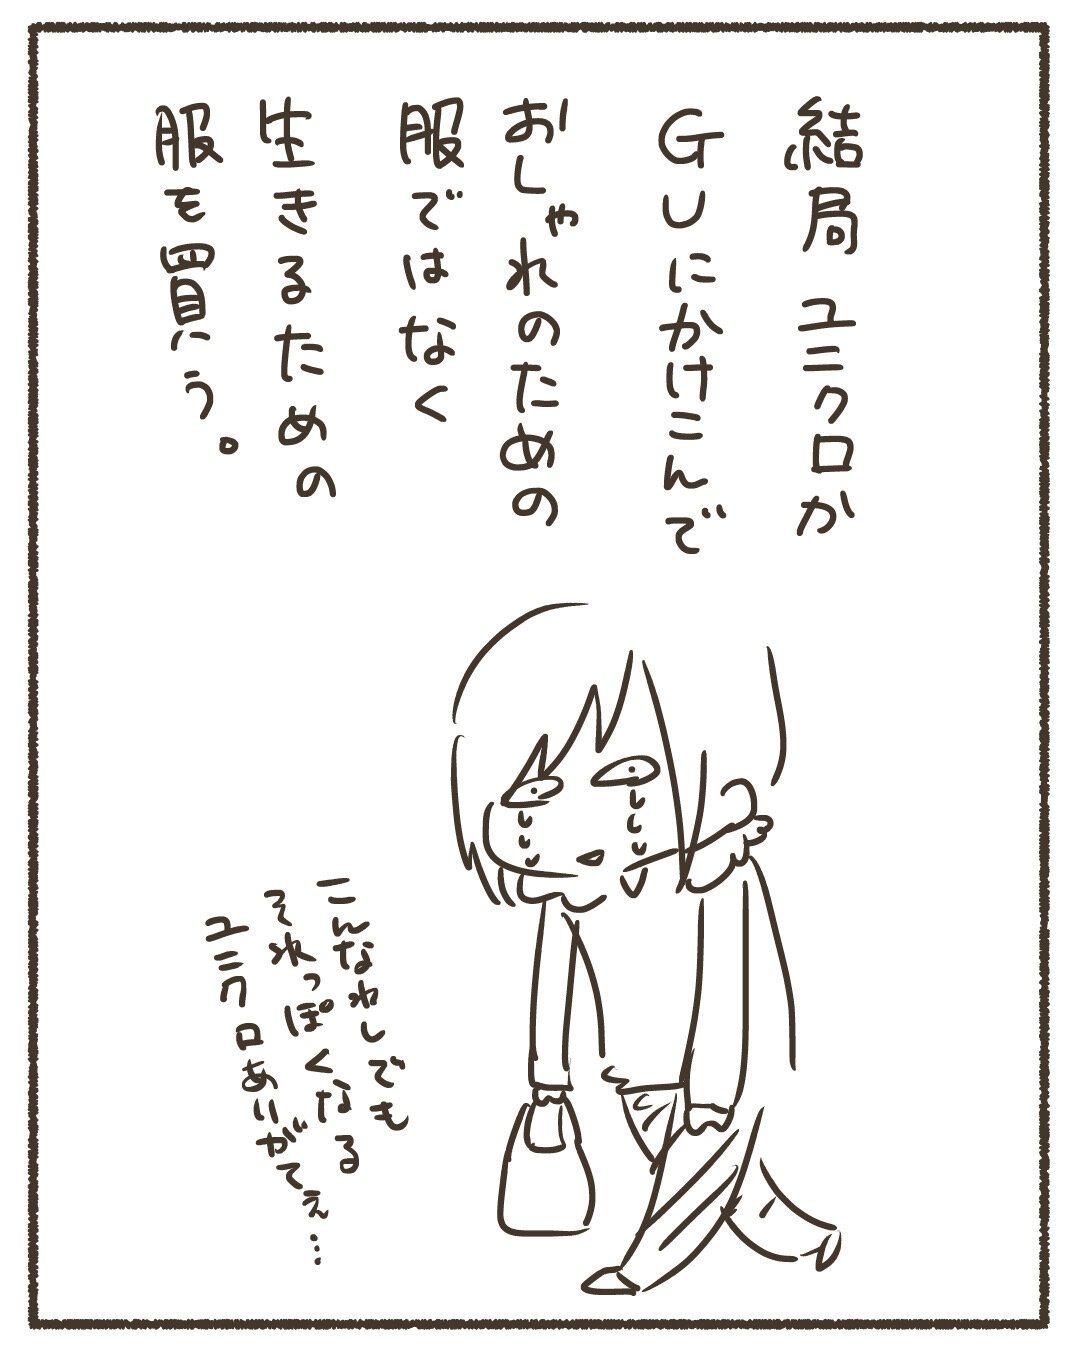 結局 ユニクロか
GUにかけこんで
おしゃれのための
服ではなく
生きるための
服を買う。
こんなれしでも
それっぽくなる
ユニクロありがてぇ…